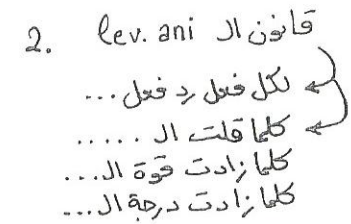 2. قانون ال lev. ani
لكل فعل رد فعل ...
كلما قلت ال .....
كلما زادت قوة ال...
كلما زادت درجة ال...